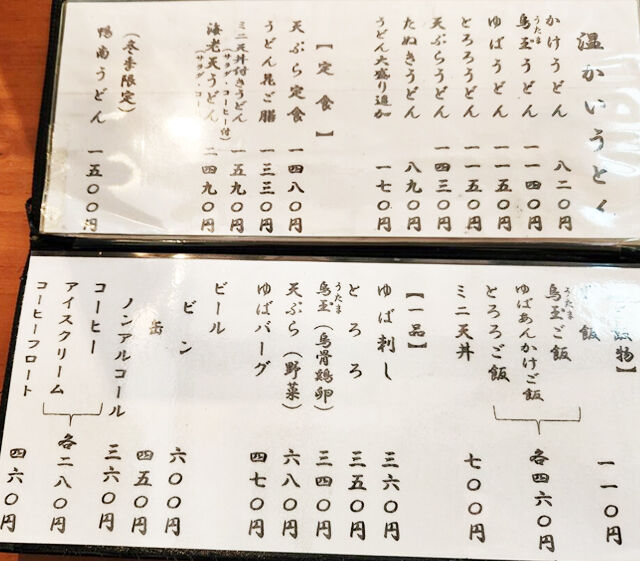 温かいうどん
かけうどん 八二〇円
うたま
烏玉うどん 一一四〇円
ゆばうどん 一一五〇円
とろろうどん 一一五〇円
天ぷらうどん 一四三〇円
たぬきうどん 八九〇円
うどん大盛り追加 一七〇円
【定食】
天ぷら定食 一四八〇円
うどん ご膳 一三三〇円
ミニ天丼付きうどん 一五九〇円
(サラダ・コーヒー付)
海老天うどん 二四九〇円
(冬季限定)
鴨南うどん 一五〇〇円
物】
飯 一一〇円
うたま
烏玉ご飯
ゆばあんかけご飯 各四六〇円
とろろご飯
ミニ天丼 七〇〇円
【一品】
ゆば刺し 三六〇円
とろろ 三五〇円
うたま
烏玉(烏骨鶏卵) 三四〇円
天ぷら(野菜) 六八〇円
ゆばバーグ 四七〇円
ビール
ビン 六〇〇円
缶 四五〇円
ノンアルコール 三六〇円
コーヒー
アイスクリーム 各二八〇円
コーヒーフロート 四六〇円